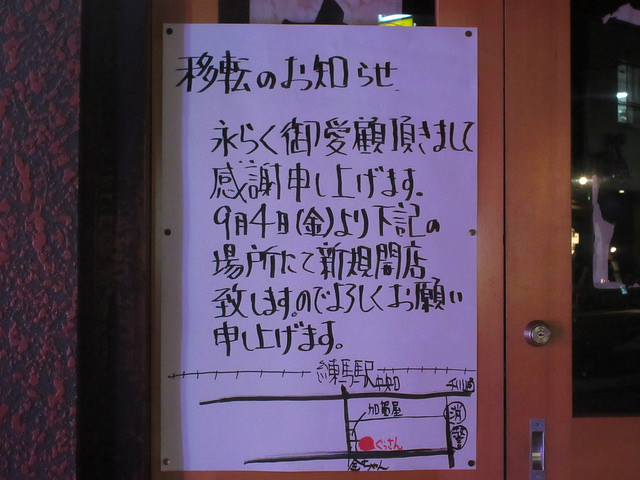 移転のお知らせ
永らく御愛顧頂きまして
感謝申し上げます。
9月4日(金)より下記の
場所にて新規開店
致します。のでよろしくお願い
申し上げます。
練馬駅
中央口
千川通
加賀屋
消
警
ぐっさん
金ちゃん